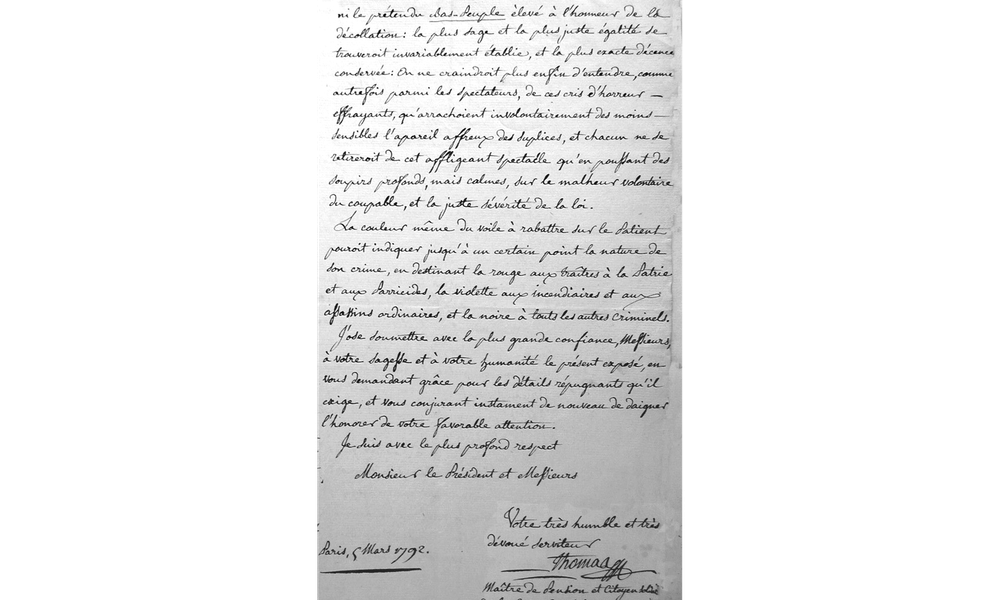 ni le prétendu Bas-Peuple élevé à l'honneur de la
décollation: la plus sage et la plus juste égalité se
trouveroit invariablement établie, et la plus exacte décence
conservée: On ne craindroit plus enfin d'entendre, comme
autrefois parmi les spectateurs, de ces cris d'horreur —
effrayants, qu'arrachoient involontairement des moins —
sensibles l'apareil affreux des suplices, et chacun ne se
retireroit de cet affligeant spectacle qu'en poussant des
soupirs profonds, mais calmes, sur le malheur volontaire
du coupable, et la juste sévérité de la loi.
La couleur même du voile à rabattre sur le Patient
pouroit indiquer jusqu'à un certain point la nature de
son crime, en destinant la rouge aux traîtres à la Patrie
et aux Parricides, la violette aux incendiaires et aux
assassins ordinaires, et la noire à touts les autres criminels.
J'ose soumettre avec la plus grande confiance, Messieurs,
à votre sagesse et à votre humanité le présent exposé, en
vous demandant grâce pour les détails répugnants qu'il
exige, et vous conjurant instament de nouveau de daigner
l'honorer de votre favorable attention.
Je suis avec le plus profond respect
Monsieur le Président et Messieurs
Votre très humble et très
dévoué serviteur
Paris, 5 Mars 1792.
Thomas
Maître de Pension et Citoyen